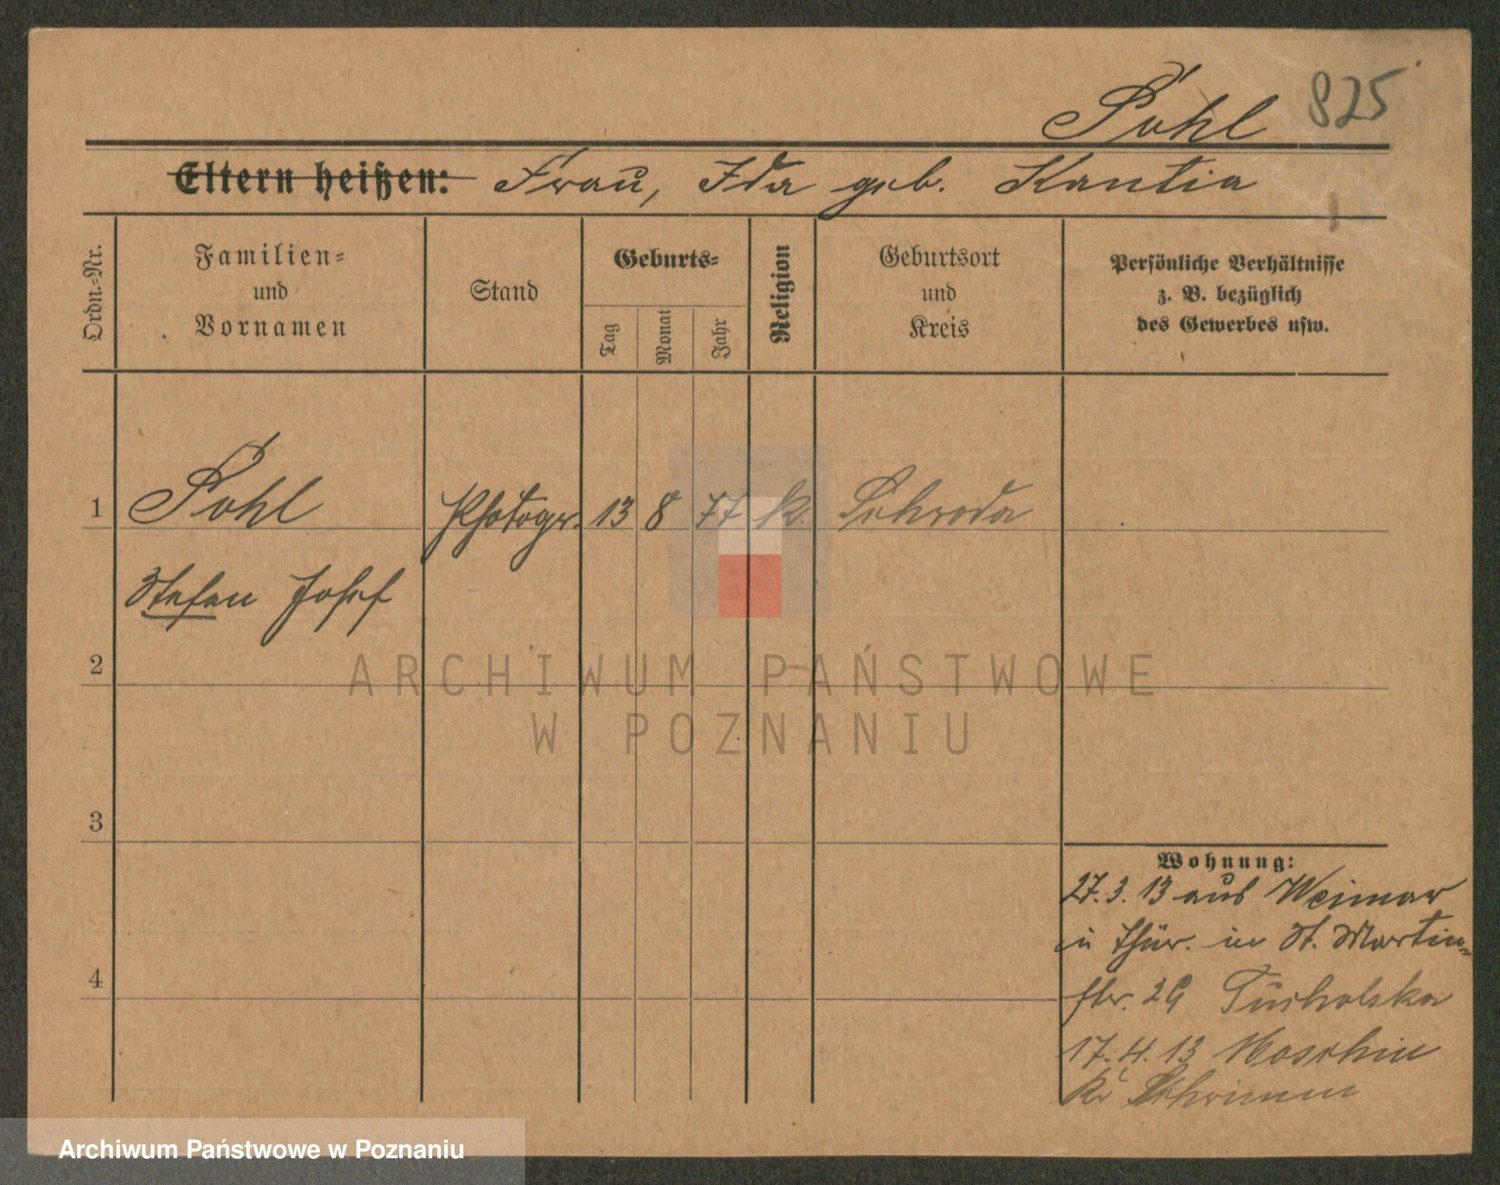 Pohl 825
Eltern heißen: Frau, Ida geb. Kantia
Ordn.-Nr.
Familien-
und
Vornamen
Stand
Geburts-
Tag
Monat
Jahr
Religion
Geburtsort
und
Kreis
Persönliche Verhältnisse
z. B. bezüglich
des Gewerbes usw.
1 Pohl Photogr. 13 8 77 k. Schroda
Stefan Josef
2
3
4
Wohnung:
27.3.13 aus Weimar
in Thür. in St. Martin-
str. 29 Tucholska
17.4.13 Moschin
Kr Schrimm
ARCHIWUM PAŃSTWOWE
W POZNANIU
Archiwum Państwowe w Poznaniu